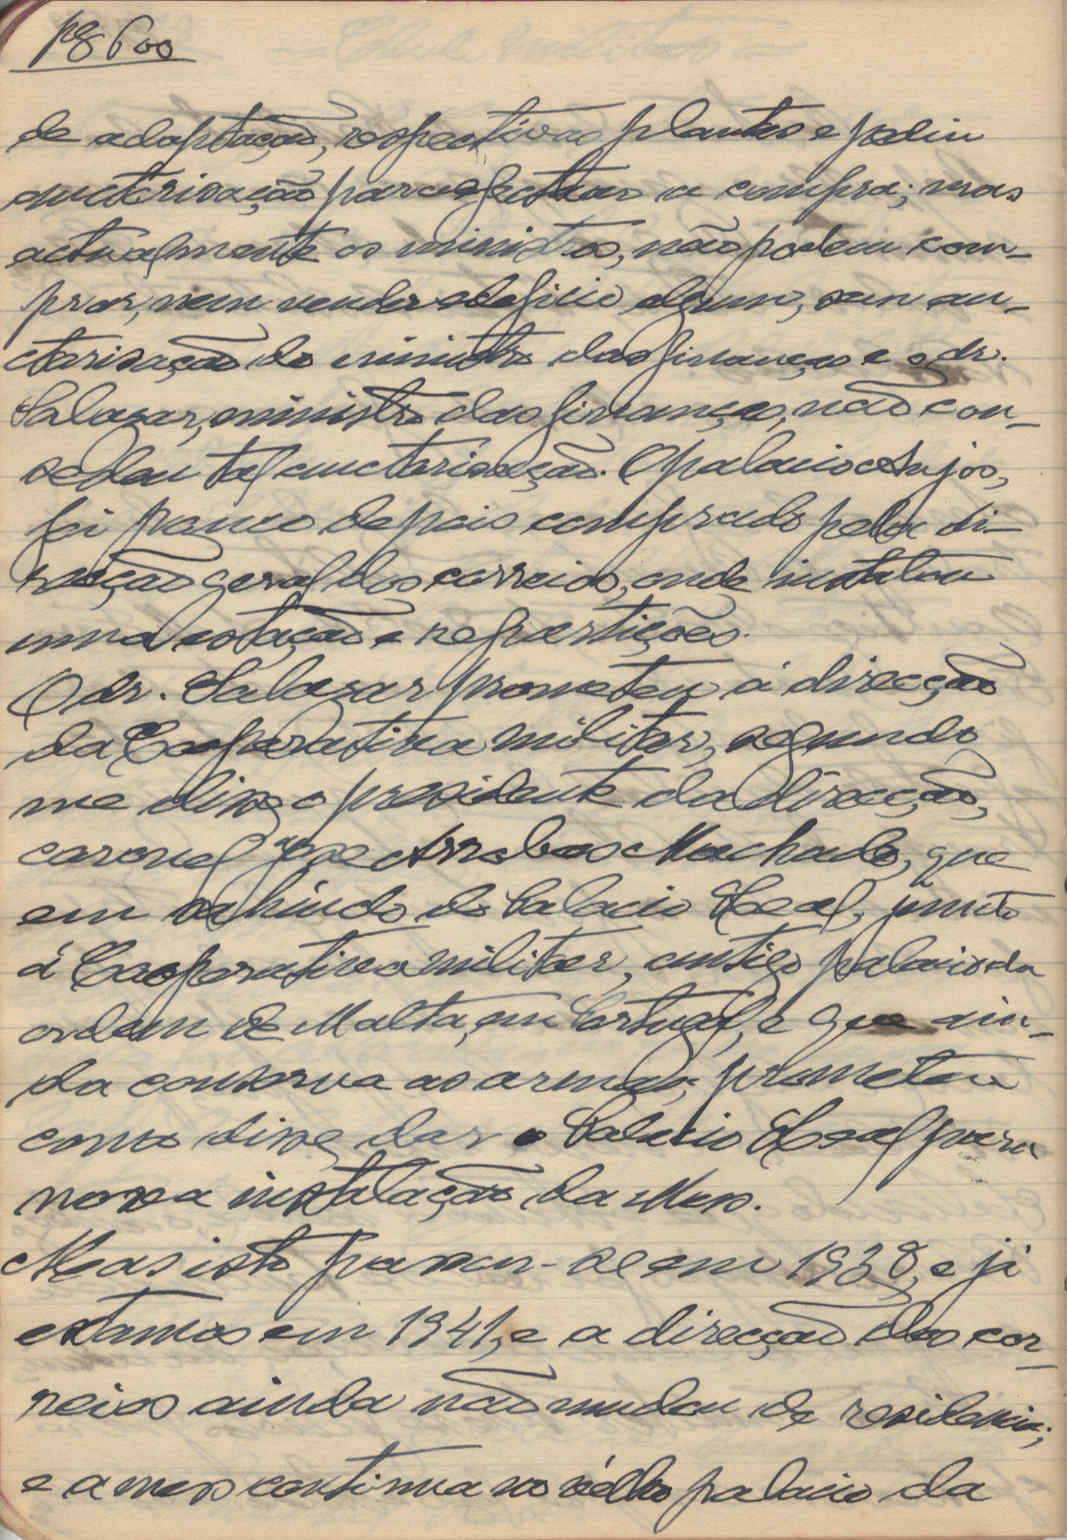 pg 600
de adaptação, respectivas plantas e pediu
auctorisação para efectuar a compra; mas
actualmente os ministros, não podem com-
prar, nem vender edificio algum, sem au-
ctorisação do ministro das finanças e o dr.
Salazar, ministro das finanças, não con-
cedeu tal auctorisação. O palacio Anjos,
foi pouco depois comprado pela di-
recção geral dos correios, onde installou
uma estação e repartições.
O dr. Salazar prometeu á direcção
da Cooperativa militar, segundo
me disse o presidente da direcção,
coronel José Arrobas Machado, que
em sahindo do Palacio Leal, junto
á Cooperativa militar, antigo palacio da
ordem de Malta, em Portugal, e que ain-
da conserva as armas; prometeu
como disse, dar o Palacio Leal para
nova instalação da Mess.
Mas isto passou-se em 1938, e já
estamos em 1941, e a direcção dos cor-
reios ainda não mudou de residencia;
e a mess continua no vélho palacio da